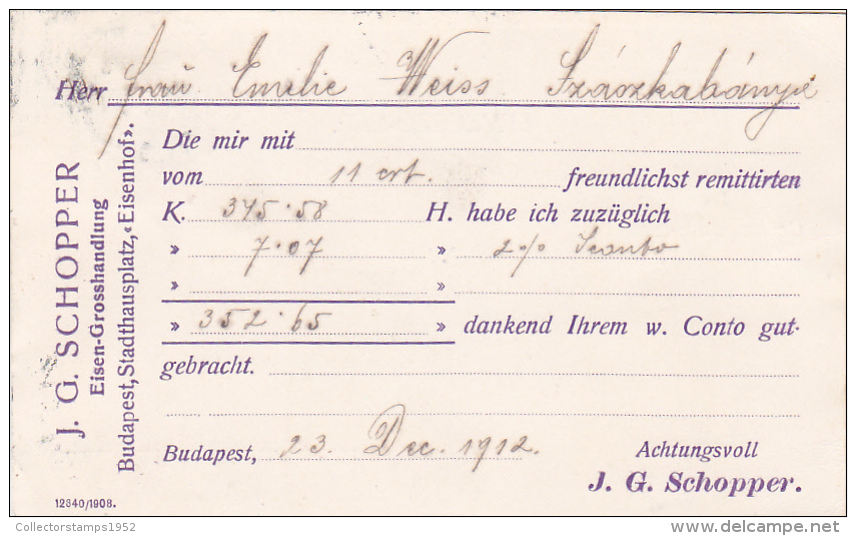 Herr Frau Emilie Weiss Szászkabánya
Die mir mit
vom 11 crt. freundlichst remittirten
K. 345·58 H. habe ich zuzüglich
» 7·07 » 2% Sconto
» »
» 352·65 » dankend Ihrem w. Conto gut-
gebracht.
Budapest, 23. Dec. 1912.
Achtungsvoll
J. G. Schopper.
J. G. SCHOPPER
Eisen-Grosshandlung
Budapest, Stadthausplatz, «Eisenhof».
12840/1908.
Collectorstamps1952
delcampe.net